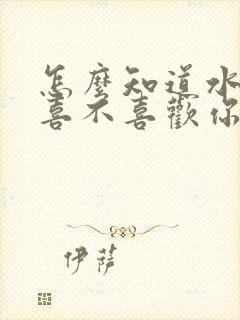 怎麼知道水
喜不喜歡你
伊薩